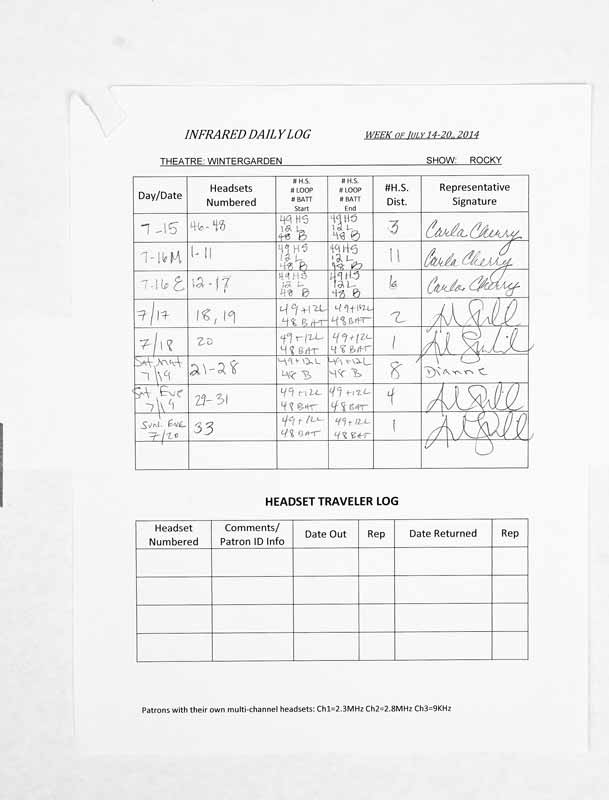 INFRARED DAILY LOG WEEK OF JULY 14-20, 2014
THEATRE: WINTERGARDEN SHOW: ROCKY
Day/Date Headsets Numbered # H.S. # LOOP # BATT Start # H.S. # LOOP # BATT End #H.S. Dist. Representative Signature
7-15 46-48 49 HS 12 L 48 B 49 HS 12 L 48 B 3 Carla Cherry
7-16 M 1-11 49 HS 12 L 48 B 49 HS 12 L 48 B 11 Carla Cherry
7-16 E 12-17 49 HS 12 L 48 B 49 HS 12 L 48 B 6 Carla Cherry
7/17 18, 19 49+12L 48 BAT 49+12L 48 BAT 2
7/18 20 49+12L 48 BAT 49+12L 48 BAT 1
Sat. Mat 7/19 21-28 49+12L 48 B 49+12L 48 B 8 Dianne
Sat. Eve 7/19 29-31 49+12L 48 BAT 49+12L 48 BAT 4
Sun. Eve 7/20 33 49+12L 48 BAT 49+12L 48 BAT 1
HEADSET TRAVELER LOG
Headset Numbered Comments/ Patron ID Info Date Out Rep Date Returned Rep
Patrons with their own multi-channel headsets: Ch1=2.3MHz Ch2=2.8MHz Ch3=9KHz